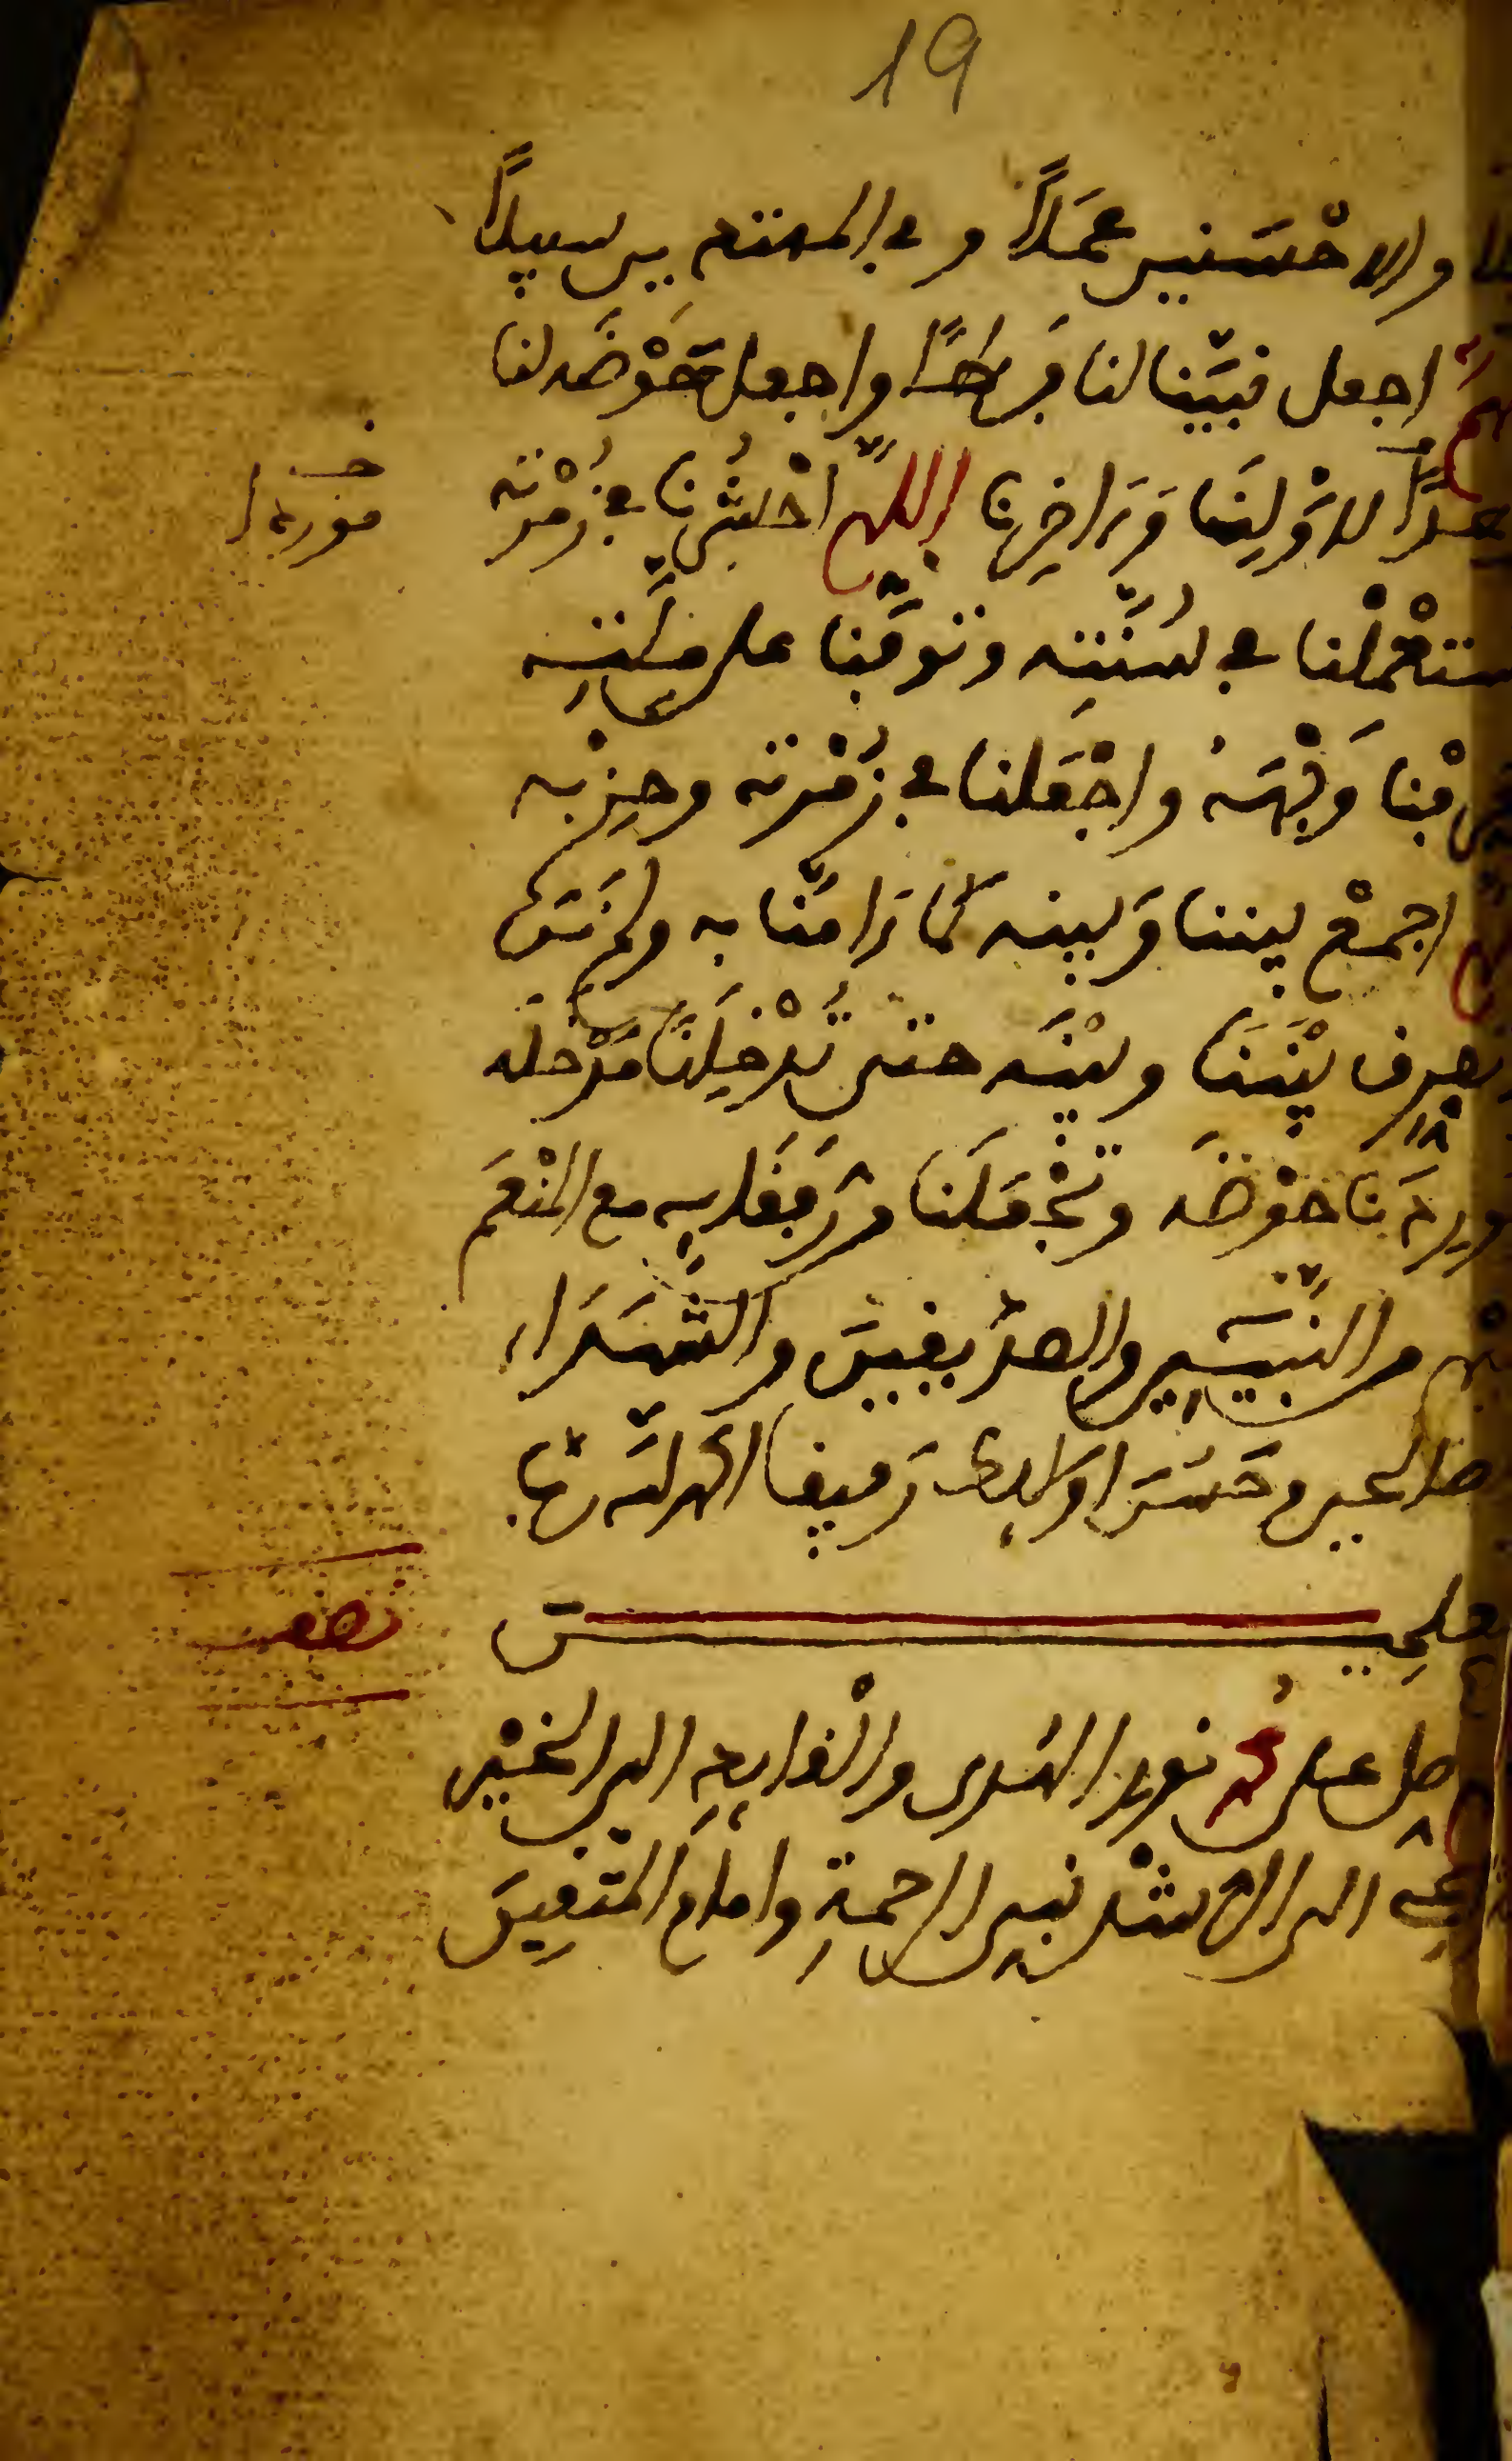 19
والاحسنين عملاً وفي المهتدين سبيلاً
هم اجعل نبيّنا لنا فرطاً واجعل حَوْضَه لنا
لأوّلِنَا وَءاخِرِنا اللهم احْشُرْنا في زُمْرته
خـ
موردا
ستعْمِلْنا في سُنَّتِه وتوفَّنا على ملّته
وجْهَهُ واجْعَلنا في زُمْرته وحِزْبه
اجمعْ بيننا وَبينه كما ءامَنّا به ولم نَرَه
تفرق بَيْنَنَا وبيْنَه حتى تُدْخِلَنَا مَدْخله
وتوردَنا حَوْضَه وتَجْعَلَنا من رفقايه مع المنْعَم
من النَّبيّين والصدّيقينَ والشُّهَداء
صالحين وحَسُنَ اولايك رَفيقا الحمد لله ربّ
علمين
نصف
صل على محمد نورِ الهُدى والْقايدِ الى الخيْر
الى الرشْد نبي الرحمةِ وامام المتقينَ